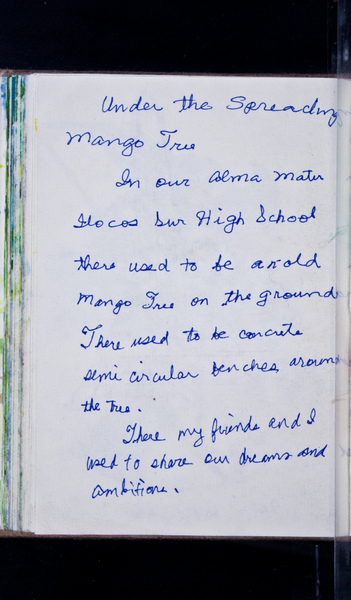 Under the Spreading
Mango Tree
In our Alma Mater
Ilocos Sur High School
there used to be an old
Mango Tree on the ground
There used to be concrete
semi circular benches around
the tree.
There my friends and I
used to share our dreams and
ambitions.